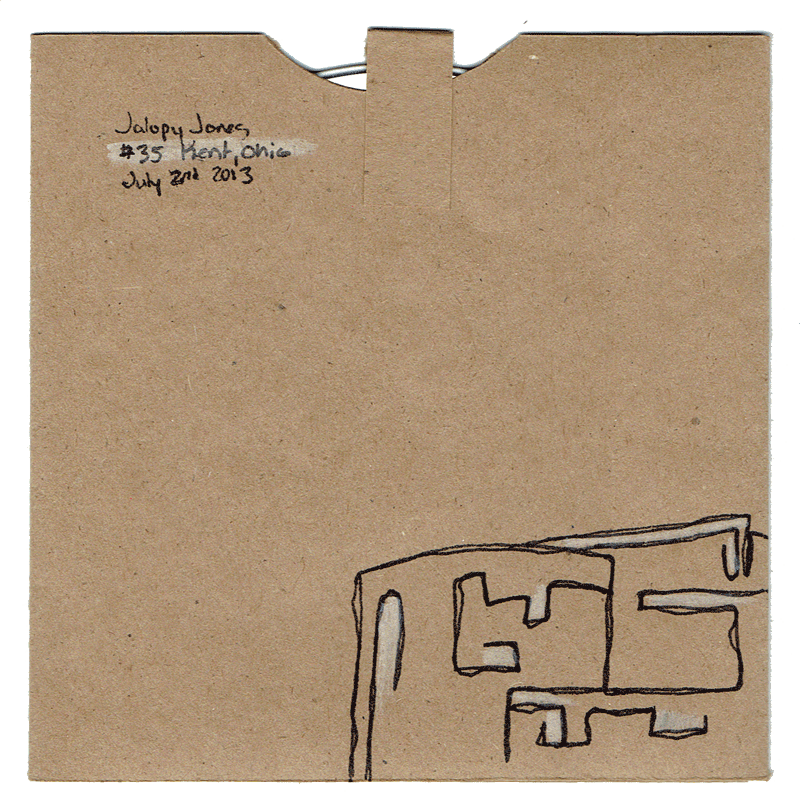 Jalopy Jones
#35 Kent, Ohio
July 2nd 2013